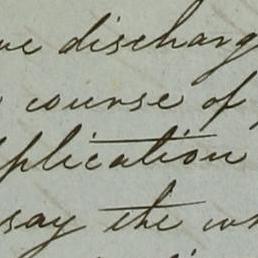 discharg
course of
pplication
say the wh